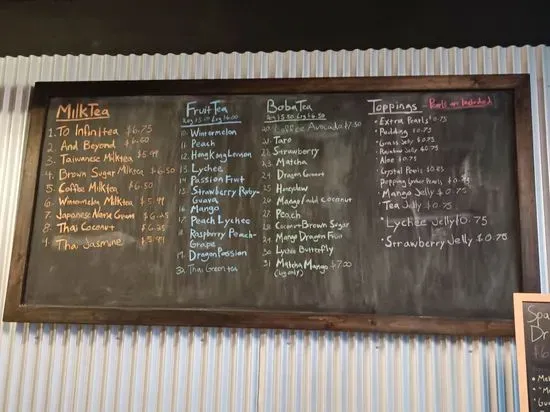 MilkTea
1. To Infinitea $6.75
2. And Beyond $6.60
3. Taiwanese Milktea $5.99
4. Brown Sugar Milktea $6.50
5. Coffee Milktea $6.50
6. Watermelon Milktea $5.99
7. Japanese Nama Cream $6.25
8. Thai Coconut $6.25
9. Thai Jasmine $5.99
FruitTea
Reg $5.00 Lrg $6.00
10. Wintermelon
11. Peach
12. HongKong Lemon
13. Lychee
14. Passion Fruit
15. Strawberry Ruby-
Guava
16. Mango
17. Peach Lychee
18. Raspberry Peach-
Grape
19. Dragon Passion
32. Thai Green tea
BobaTea
Reg $5.50 Lrg $6.50
20. Coffee Avocado $7.50
21. Taro
22. Strawberry
23. Matcha
24. Dragon Coconut
25. Honeydew
26. Mango/add coconut
27. Peach
28. Coconut Brown Sugar
29. Mango Dragon Fruit
30. Lychee Butterfly
31. Matcha Mango $7.00
(Lrg only)
Toppings - Pearls are Included
• Extra Pearls $0.75
• Pudding $0.75
• Grass Jelly $0.75
• Rainbow Jelly $0.75
• Aloe $0.75
• Crystal Pearls $0.75
• Popping Lychee Pearls $0.75
• Mango Jelly $0.75
• Tea Jelly $0.75
• Lychee Jelly $0.75
• Strawberry Jelly $0.75
Spa
Dr